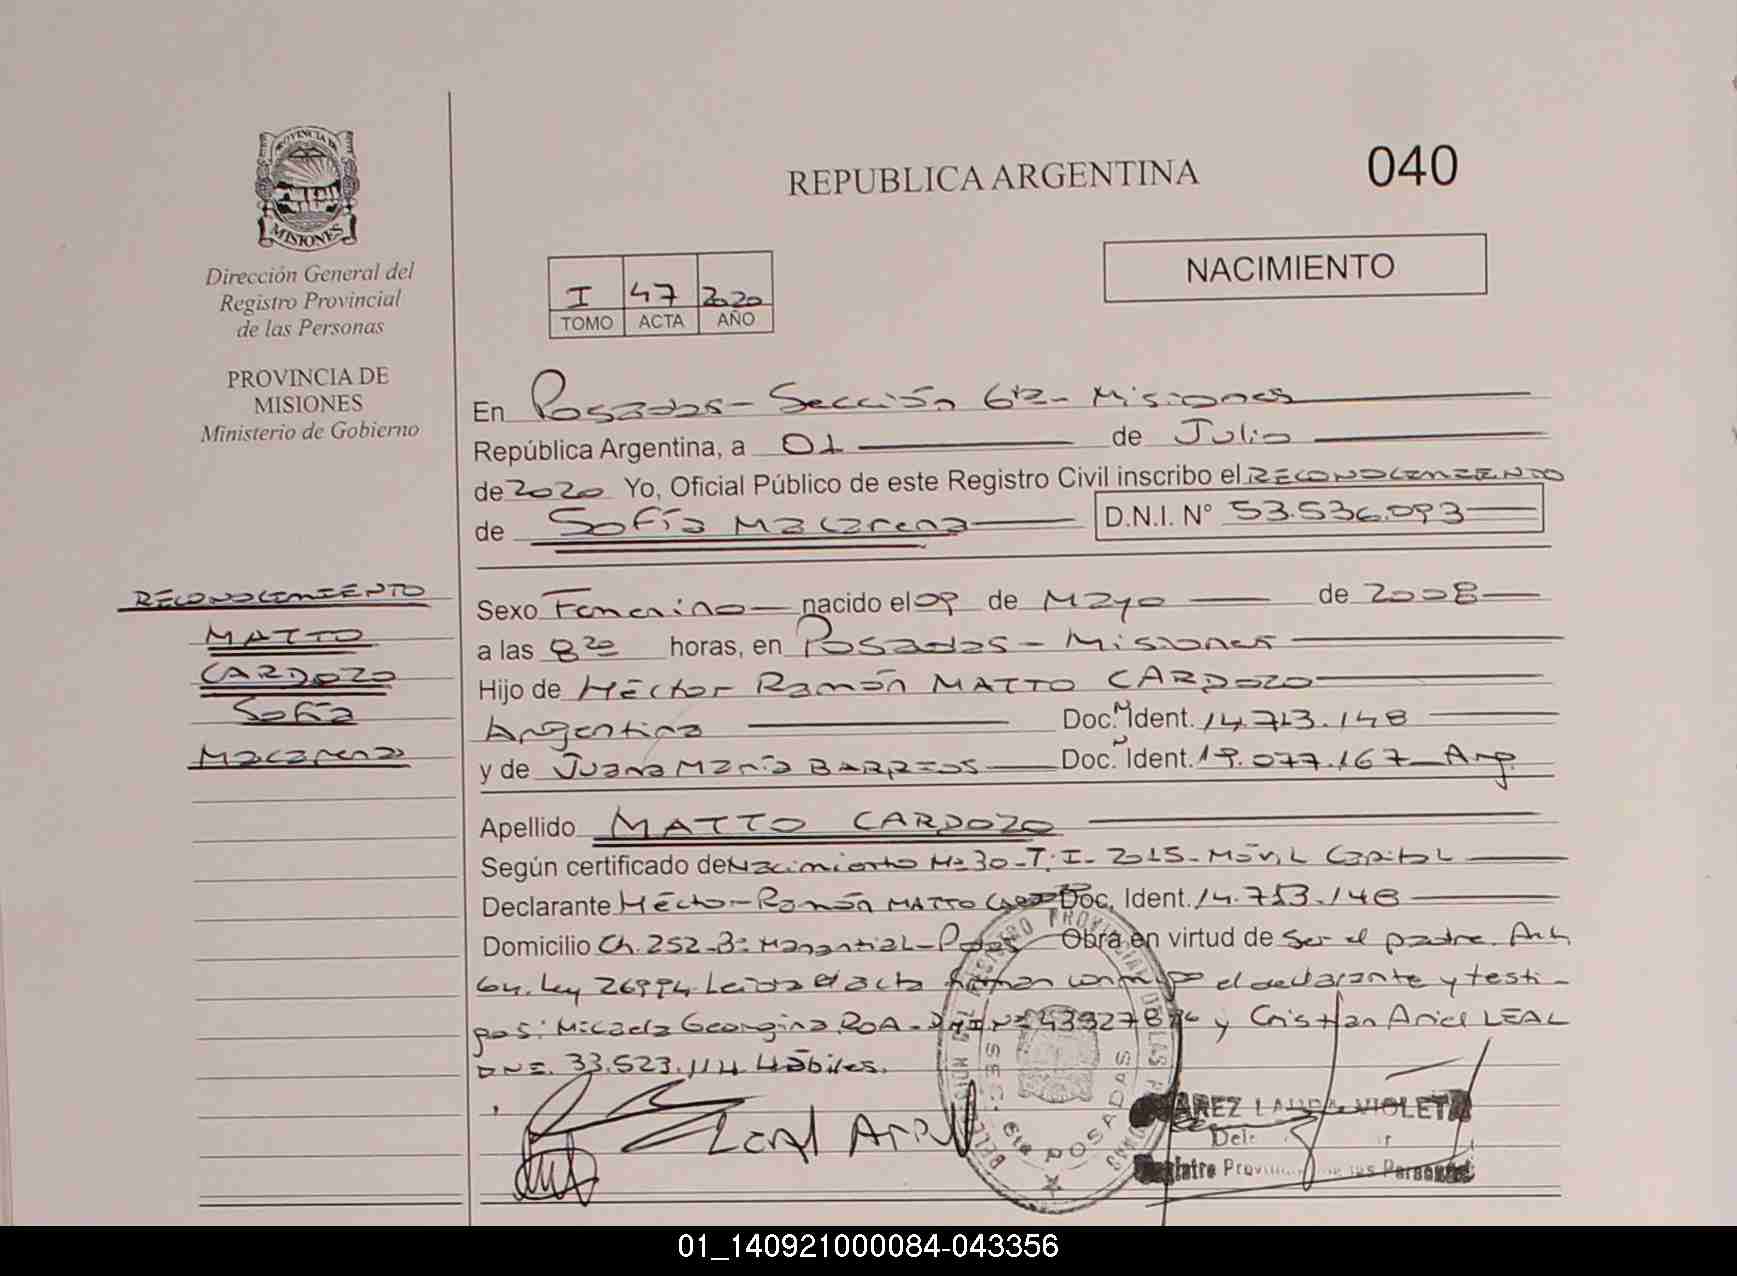 PROVINCIA DE
MISIONES
Dirección General del
Registro Provincial
de las Personas
PROVINCIA DE
MISIONES
Ministerio de Gobierno
RECONOCIMIENTO
MATTO
CARDOZO
Sofía
Macarena
REPUBLICA ARGENTINA
040
NACIMIENTO
I 47 2020
TOMO ACTA AÑO
En Posadas - Sección 6ta - Misiones
República Argentina, a 01 de Julio
de 2020 Yo, Oficial Público de este Registro Civil inscribo el RECONOCIMIENTO
de Sofía Macarena D.N.I. N° 53.536.093
Sexo Femenino nacido el 09 de Mayo de 2008
a las 8 20 horas, en Posadas - Misiones
Hijo de Héctor Ramón MATTO CARDOZO
Argentina Doc. Ident. 14.713.148
y de Juana María BARRIOS Doc. Ident. 19.077.167 Arg.
Apellido MATTO CARDOZO
Según certificado de Nacimiento Nº 30 - T. I - 2015 - Móvil Capital
Declarante Héctor Ramón MATTO Doc. Ident. 14.713.148
Domicilio Ch. 252 - Bº Manantial - Pdas Obra en virtud de ser el padre. Art.
64. Ley 26994. Leída el acta firman conmigo el declarante y testi-
gos: Micaela Georgina ROA - DNI Nº y Cristian Ariel LEAL
DNI. 33.523.114 Hábiles.
Leal Ariel
REGISTRO PROVINCIAL DE LAS PERSONAS
SEC. 6ta POSADAS
LAURA VIOLETA
Registro Provincial de las Personas
01_140921000084-043356